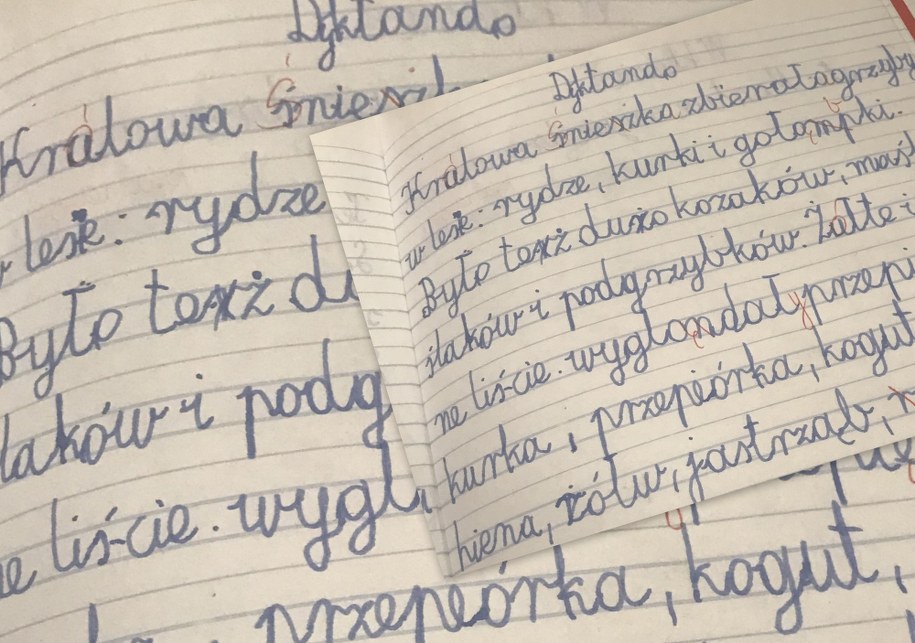 Dyktando
Królowa śnieżk
w lesie: rydze
Było też du
laków i podg
ne liście. wygl
przepiórka, kogut,
Dyktando
Królowa śnieżka zbierała grzyby
w lesie: rydze, kurki i gołompki.
Było też dużo kozaków, maś
laków i podgrzybków. Żółte i
ne liście. wyglondały przepi
kurka, przepiórka, kogut
hiena, żółw, jastrząb,